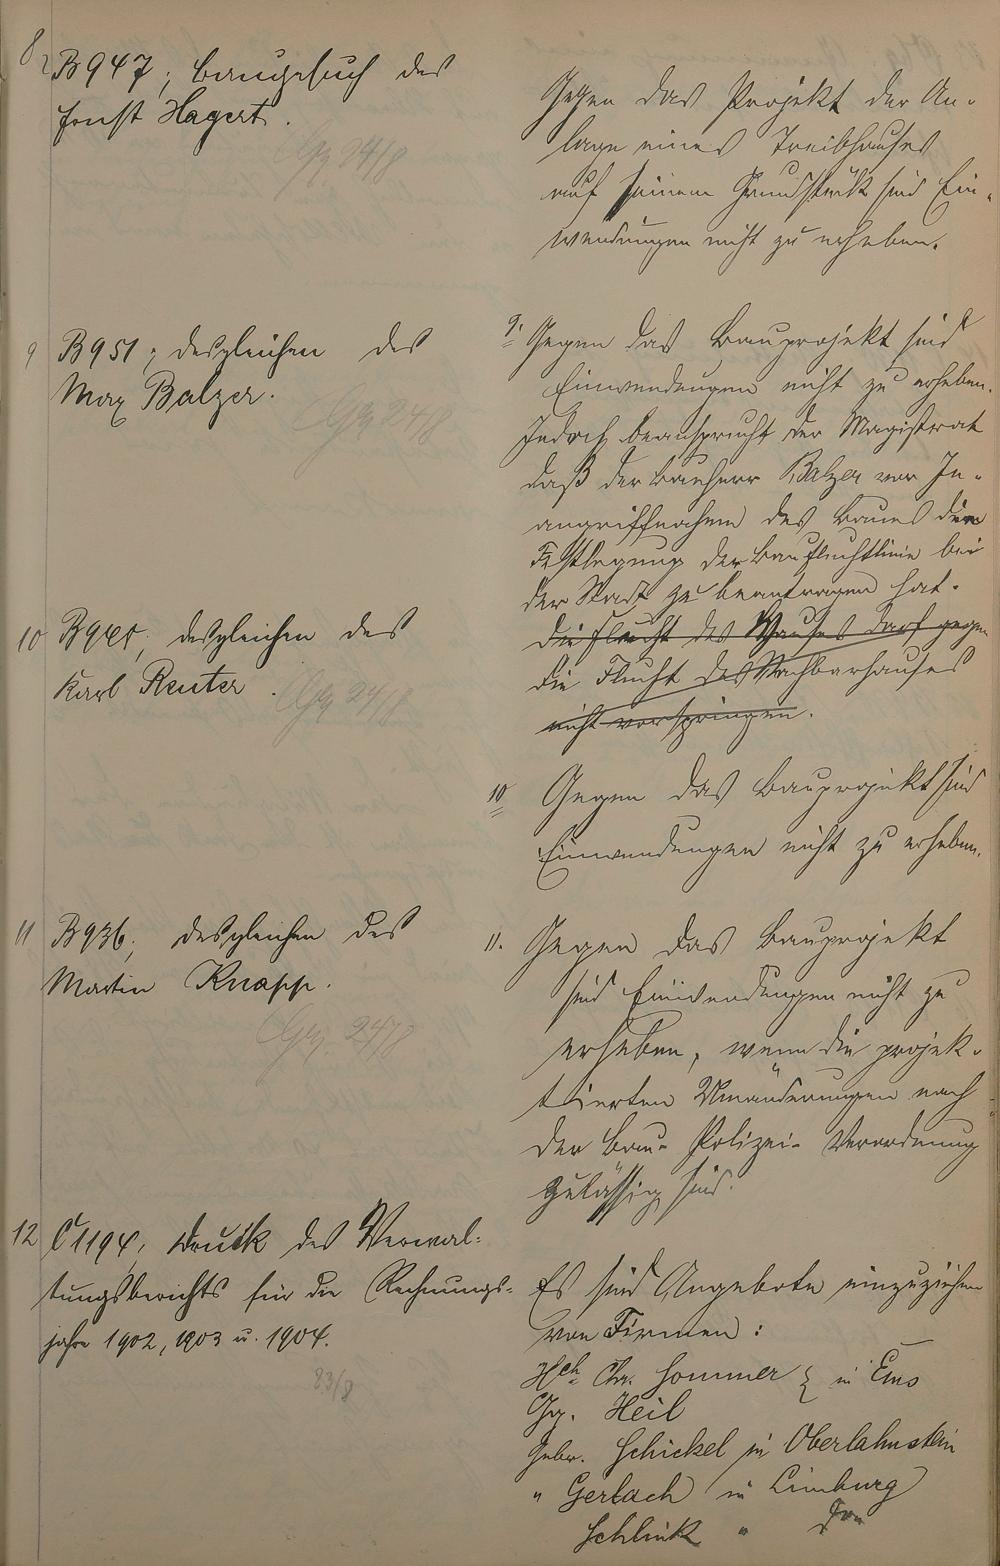 8, B 947; Baugesuch des
Ernst Hagert.
Gegen das Projekt der An-
lage eines Treibhauses
auf seinem Grundstück sind Ein-
wendungen nicht zu erheben.
9 B 951; desgleichen des
Max Balzer.
9. Gegen das Bauprojekt sind
Einwendungen nicht zu erheben.
Jedoch beansprucht der Magistrat
daß der Bauherr Balzer vor In-
angriffnahme des Baues die
Festlegung der Baufluchtlinie bei
der Stadt zu beantragen hat.
die Flucht des Hauses darf gegen
die Flucht des Nachbarhauses
nicht vorspringen.
10 desgleichen des
Karl Reuter.
10 Gegen das Bauprojekt sind
Einwendungen nicht zu erheben.
11 B 936; desgleichen des
Martin Knapp.
11. Gegen das Bauprojekt
sind Einwendungen nicht zu
erheben, wenn die projek-
tierten Umänderungen nach
der Bau-Polizei-Verordnung
zulässig sind.
12 C 1194; Druck des Verwal-
tungsberichts für die Rechnungs-
jahre 1902, 1903 u. 1904.
Es sind Angebote einzuziehen
von Firmen:
Hch. Chr. Sommer } in Ems
Gg. Heil
Gebr. Schickel in Oberlahnstein
" Gerlach in Limburg
Schlink "